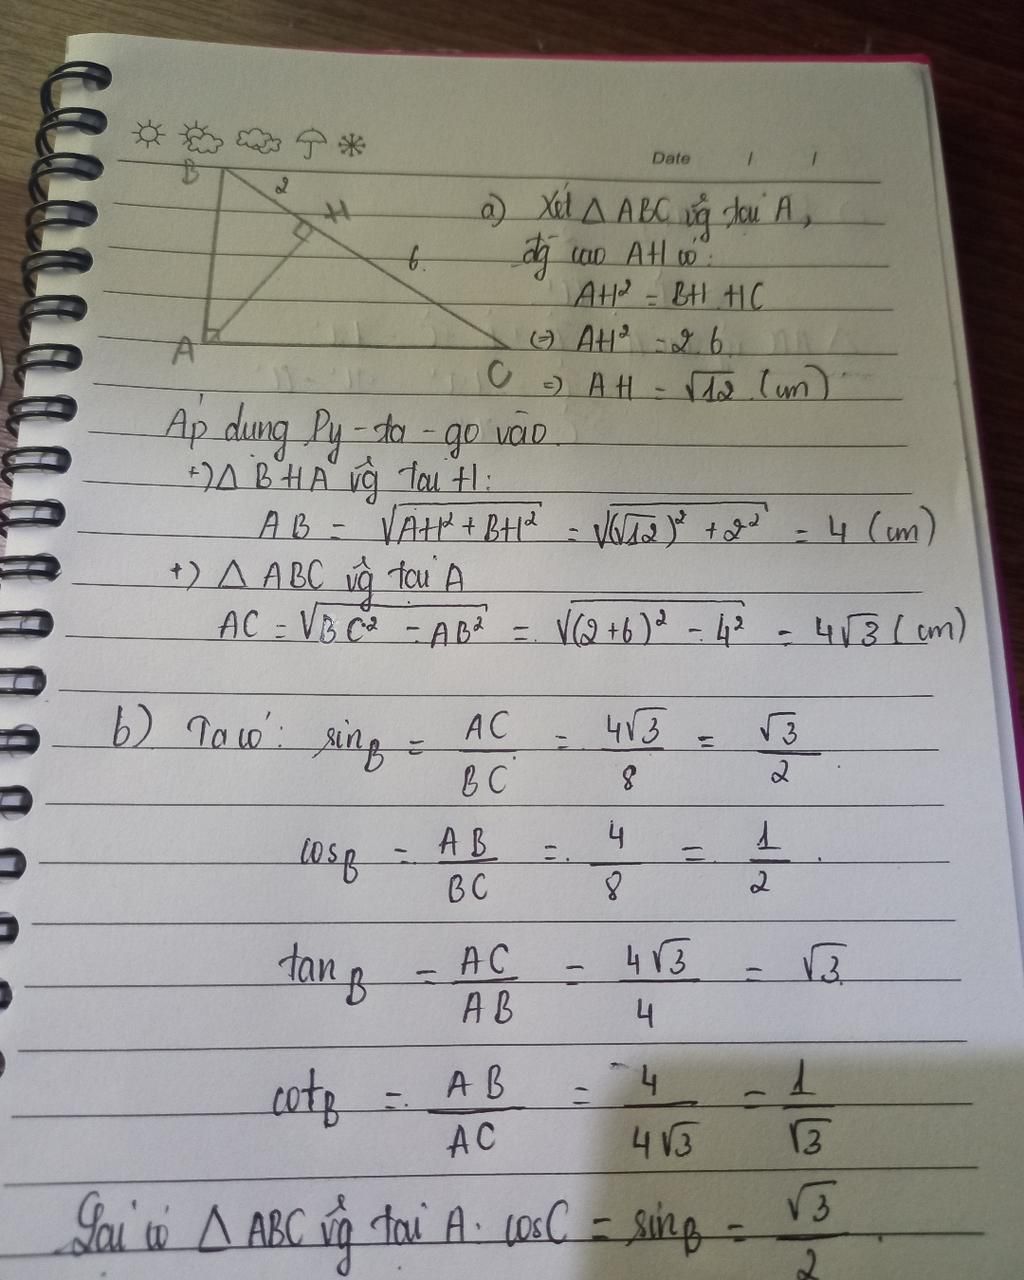 Date / /
B 2 H
6.
A
C
a) Xét △ ABC vg̃ tại A,
đg̃ cao AH có:
AH² = BH . HC
(=) AH² = 2.6
=) AH = √12 (cm)
Áp dụng Py-ta-go vào
+) △ BHA vg̃ tại H:
AB = √(AH² + BH²) = √((√12)² + 2²) = 4 (cm)
+) △ ABC vg̃ tại A
AC = √(BC² - AB²) = √((2+6)² - 4²) = 4√3 (cm)
b) Ta có: sin_B = AC/BC = 4√3/8 = √3/2.
cos_B = AB/BC = 4/8 = 1/2.
tan_B = AC/AB = 4√3/4 = √3.
cot_B = AB/AC = 4/4√3 = 1/√3
Lại có △ ABC vg̃ tại A. cosC = sin_B = √3/2.